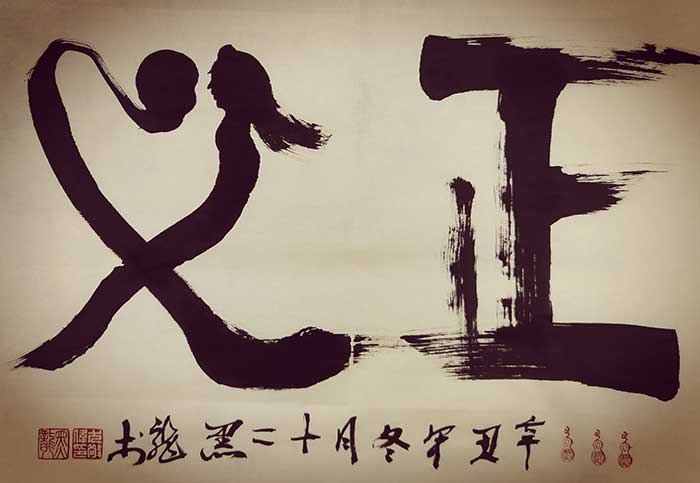 正义
辛丑年冬月十二黑龍书